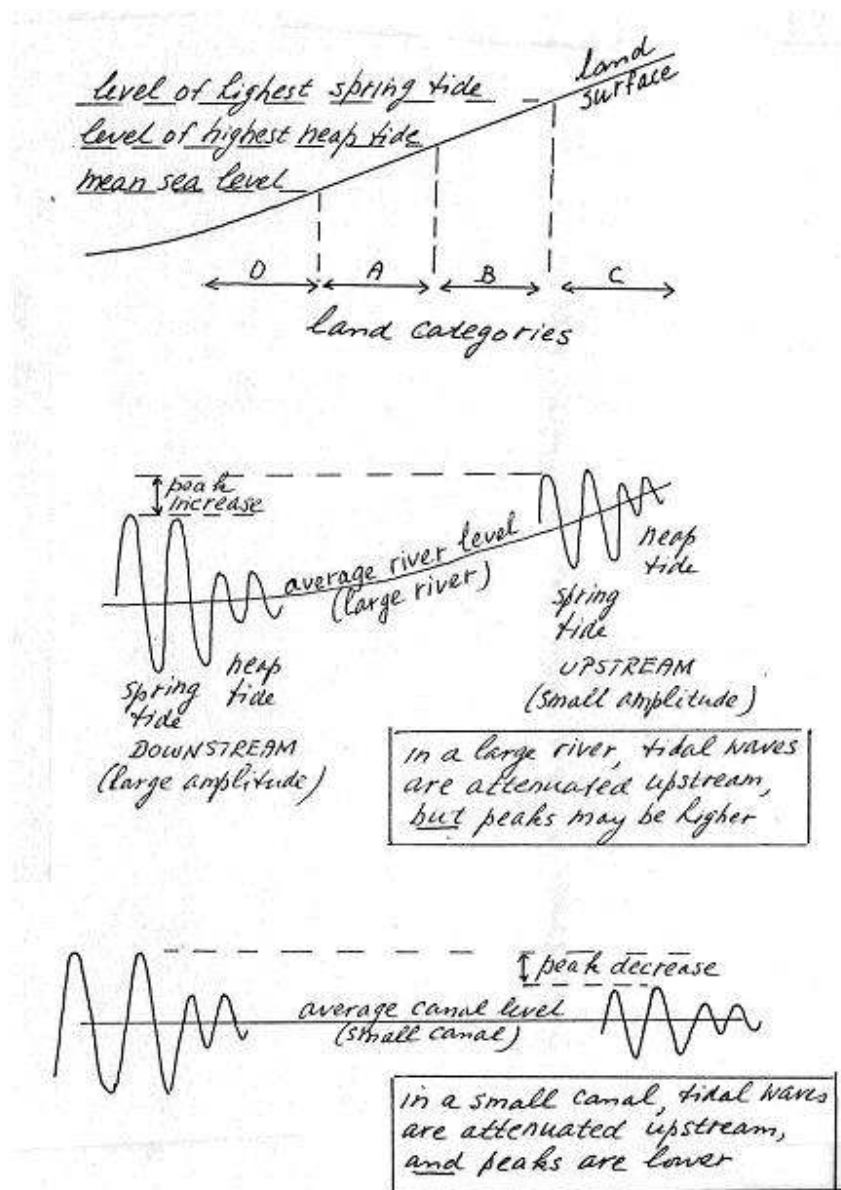 level of highest spring tide
land
surface
level of highest neap tide
mean sea level
D
A
B
C
land categories
peak
increase
average river level
(large river)
neap
tide
spring
tide
UPSTREAM
(small amplitude)
neap
tide
spring
tide
DOWNSTREAM
(large amplitude)
in a large river, tidal waves
are attenuated upstream,
but peaks may be higher
peak decrease
average canal level
(small canal)
in a small canal, tidal waves
are attenuated upstream,
and peaks are lower